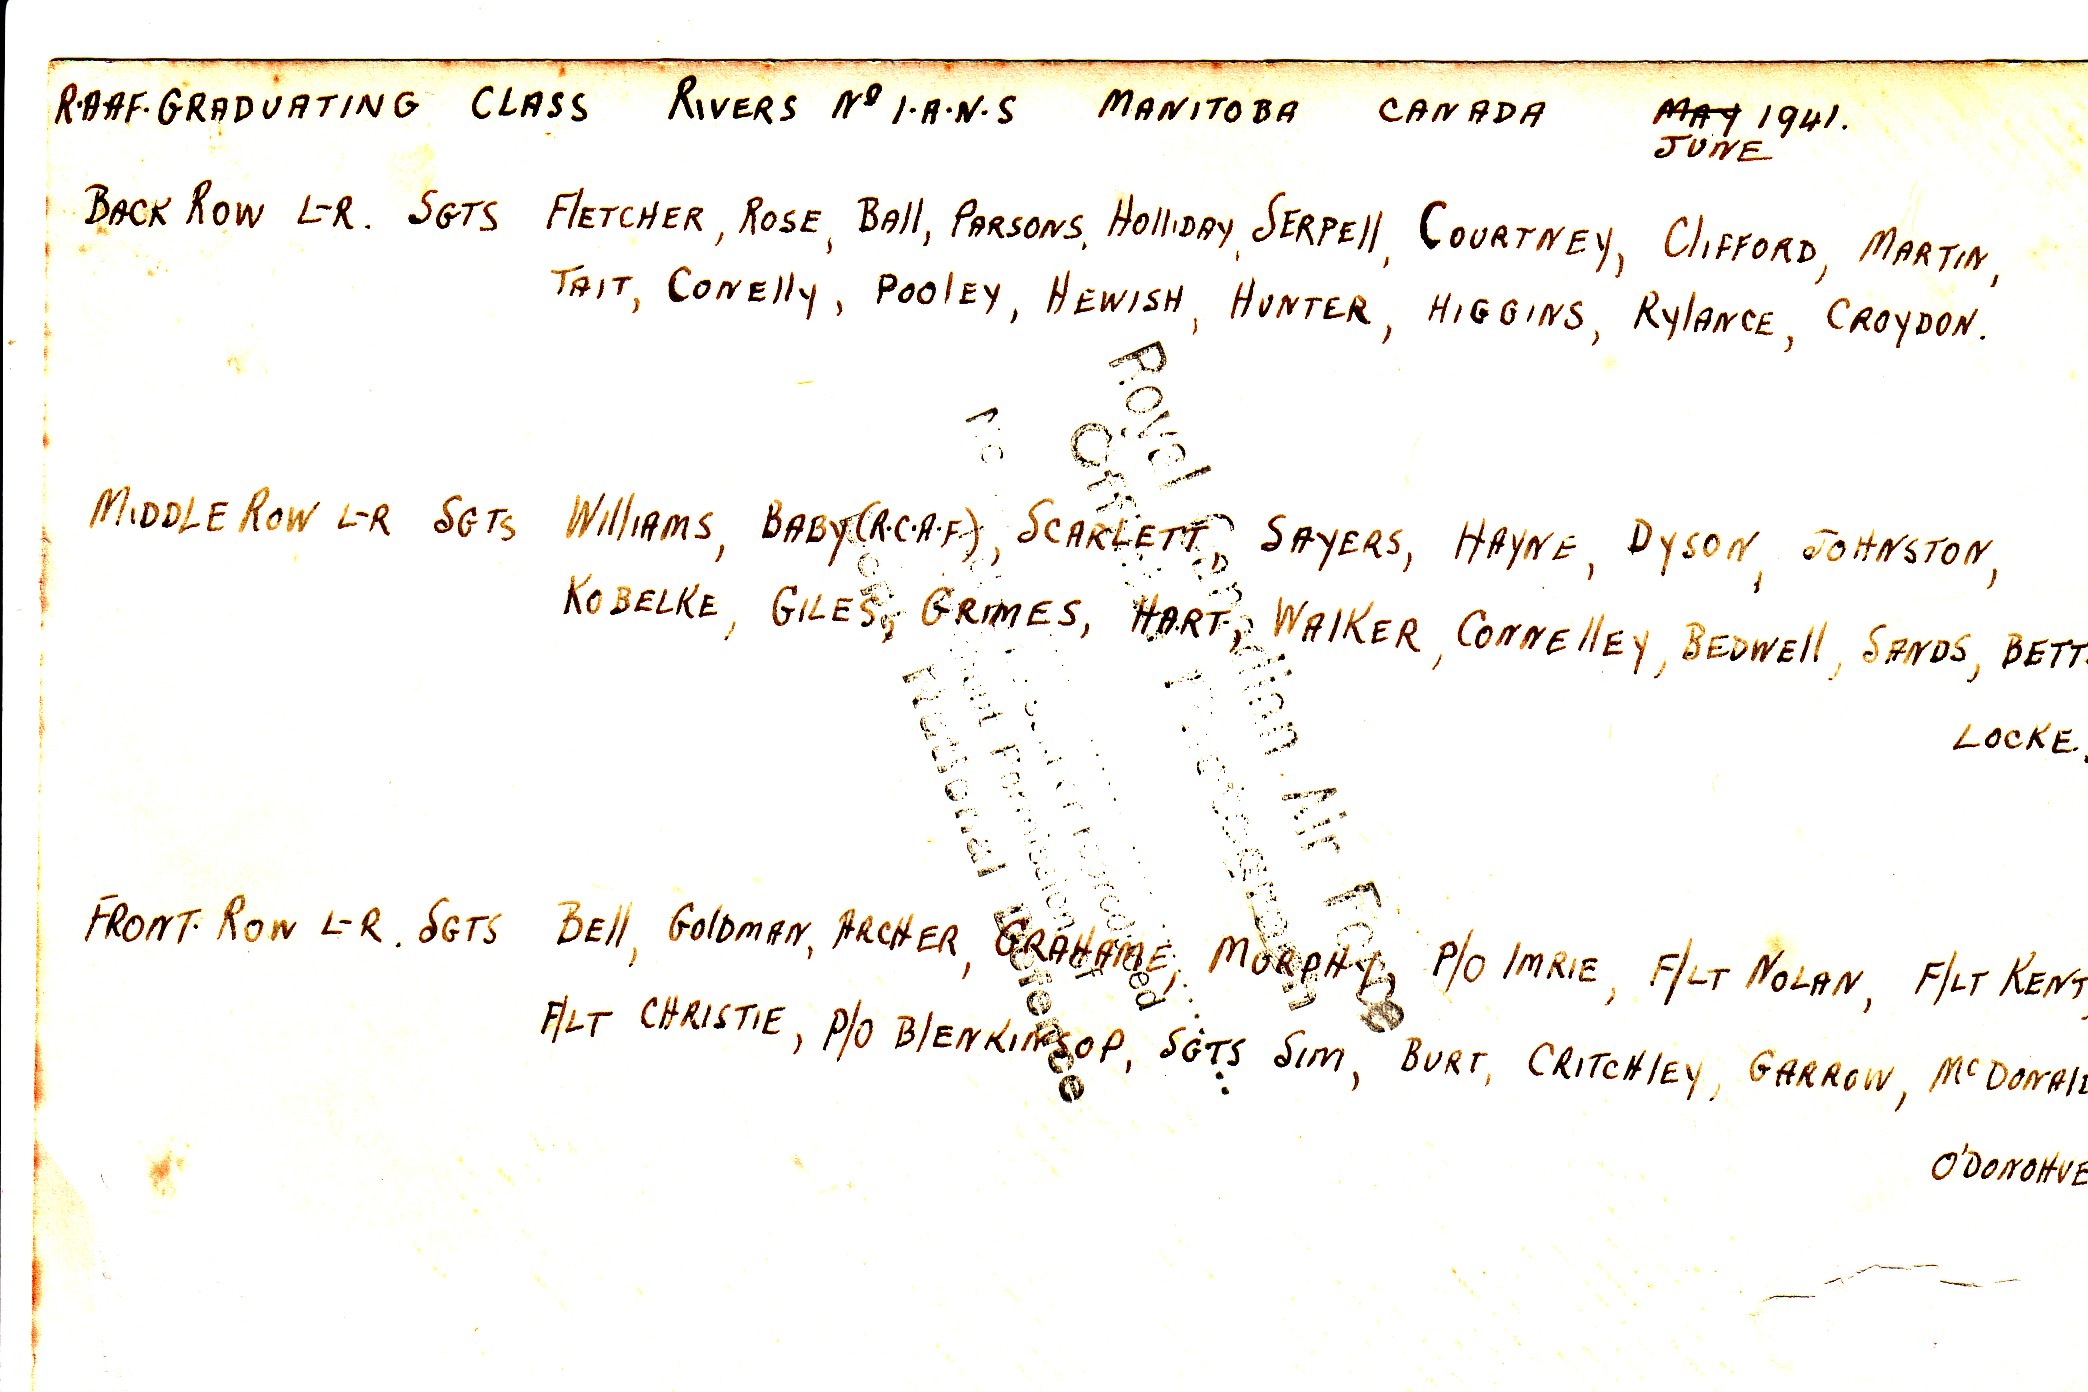 R.A.A.F. GRADUATING CLASS RIVERS Nº 1.A.N.S MANITOBA CANADA MAY 1941.
JUNE
BACK ROW L-R. SGTS FLETCHER, ROSE, BAll, PARSONS, HOllIDAY, SERPEll, COURTNEY, ClIFFORD, MARTIN,
TAIT, CONEllY, POOlEY, HEWISH, HUNTER, HIGGINS, RYlANCE, CROYDON.
MIDDLE ROW L-R SGTS WIllIAMS, BABY (R.C.A.F), SCARLETT, SAYERS, HAYNE, DYSON, JOHNSTON,
KOBELKE, GILES, GRIMES, HART, WAlKER, CONNEllEY, BEDWEll, SANDS, BETT
LOCKE.
FRONT. ROW L-R. SGTS BEll, GOlDMAN, ARCHER, GRAHAME, MURPHY, P/O IMRIE, F/LT NOLAN, F/LT KENT,
F/LT CHRISTIE, P/O BlENKINSOP, SGTS SIM, BURT, CRITCHlEY, GARROW, McDONALD
O'DONOHUE
Royal Canadian Air Force
Official Photograph
reproduced
without permission of
National Defence